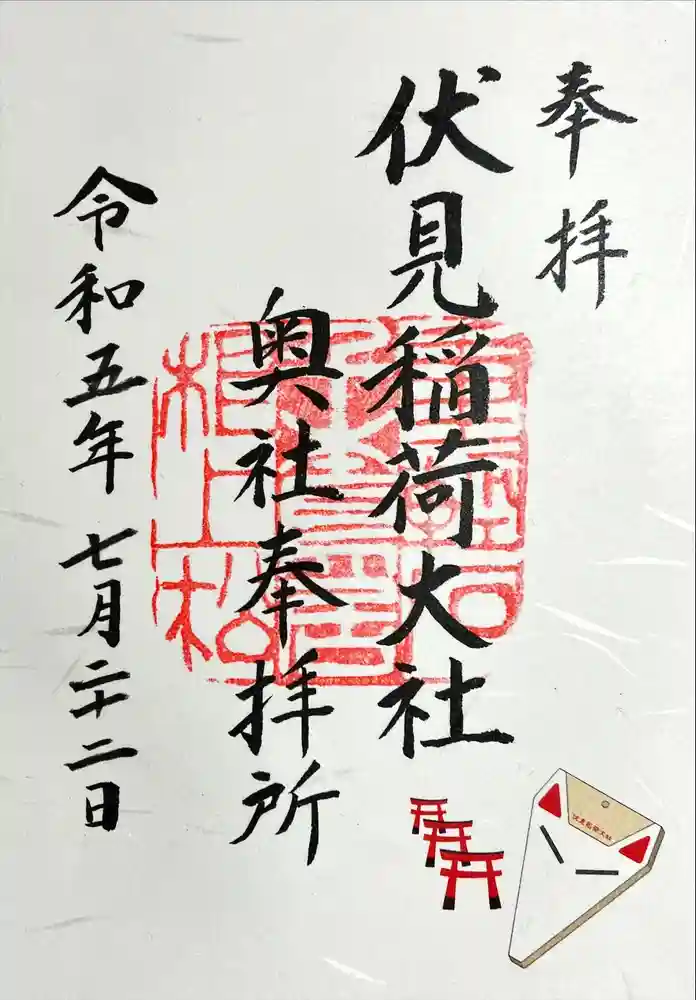 奉拝
伏見稲荷大社
奥社奉拝所
令和五年七月二十二日
伏見稲荷大社